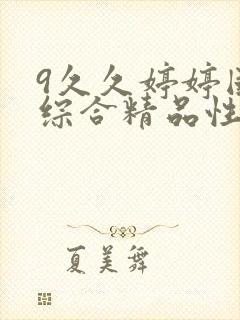 9久久婷婷国
综合精品性
夏美舞